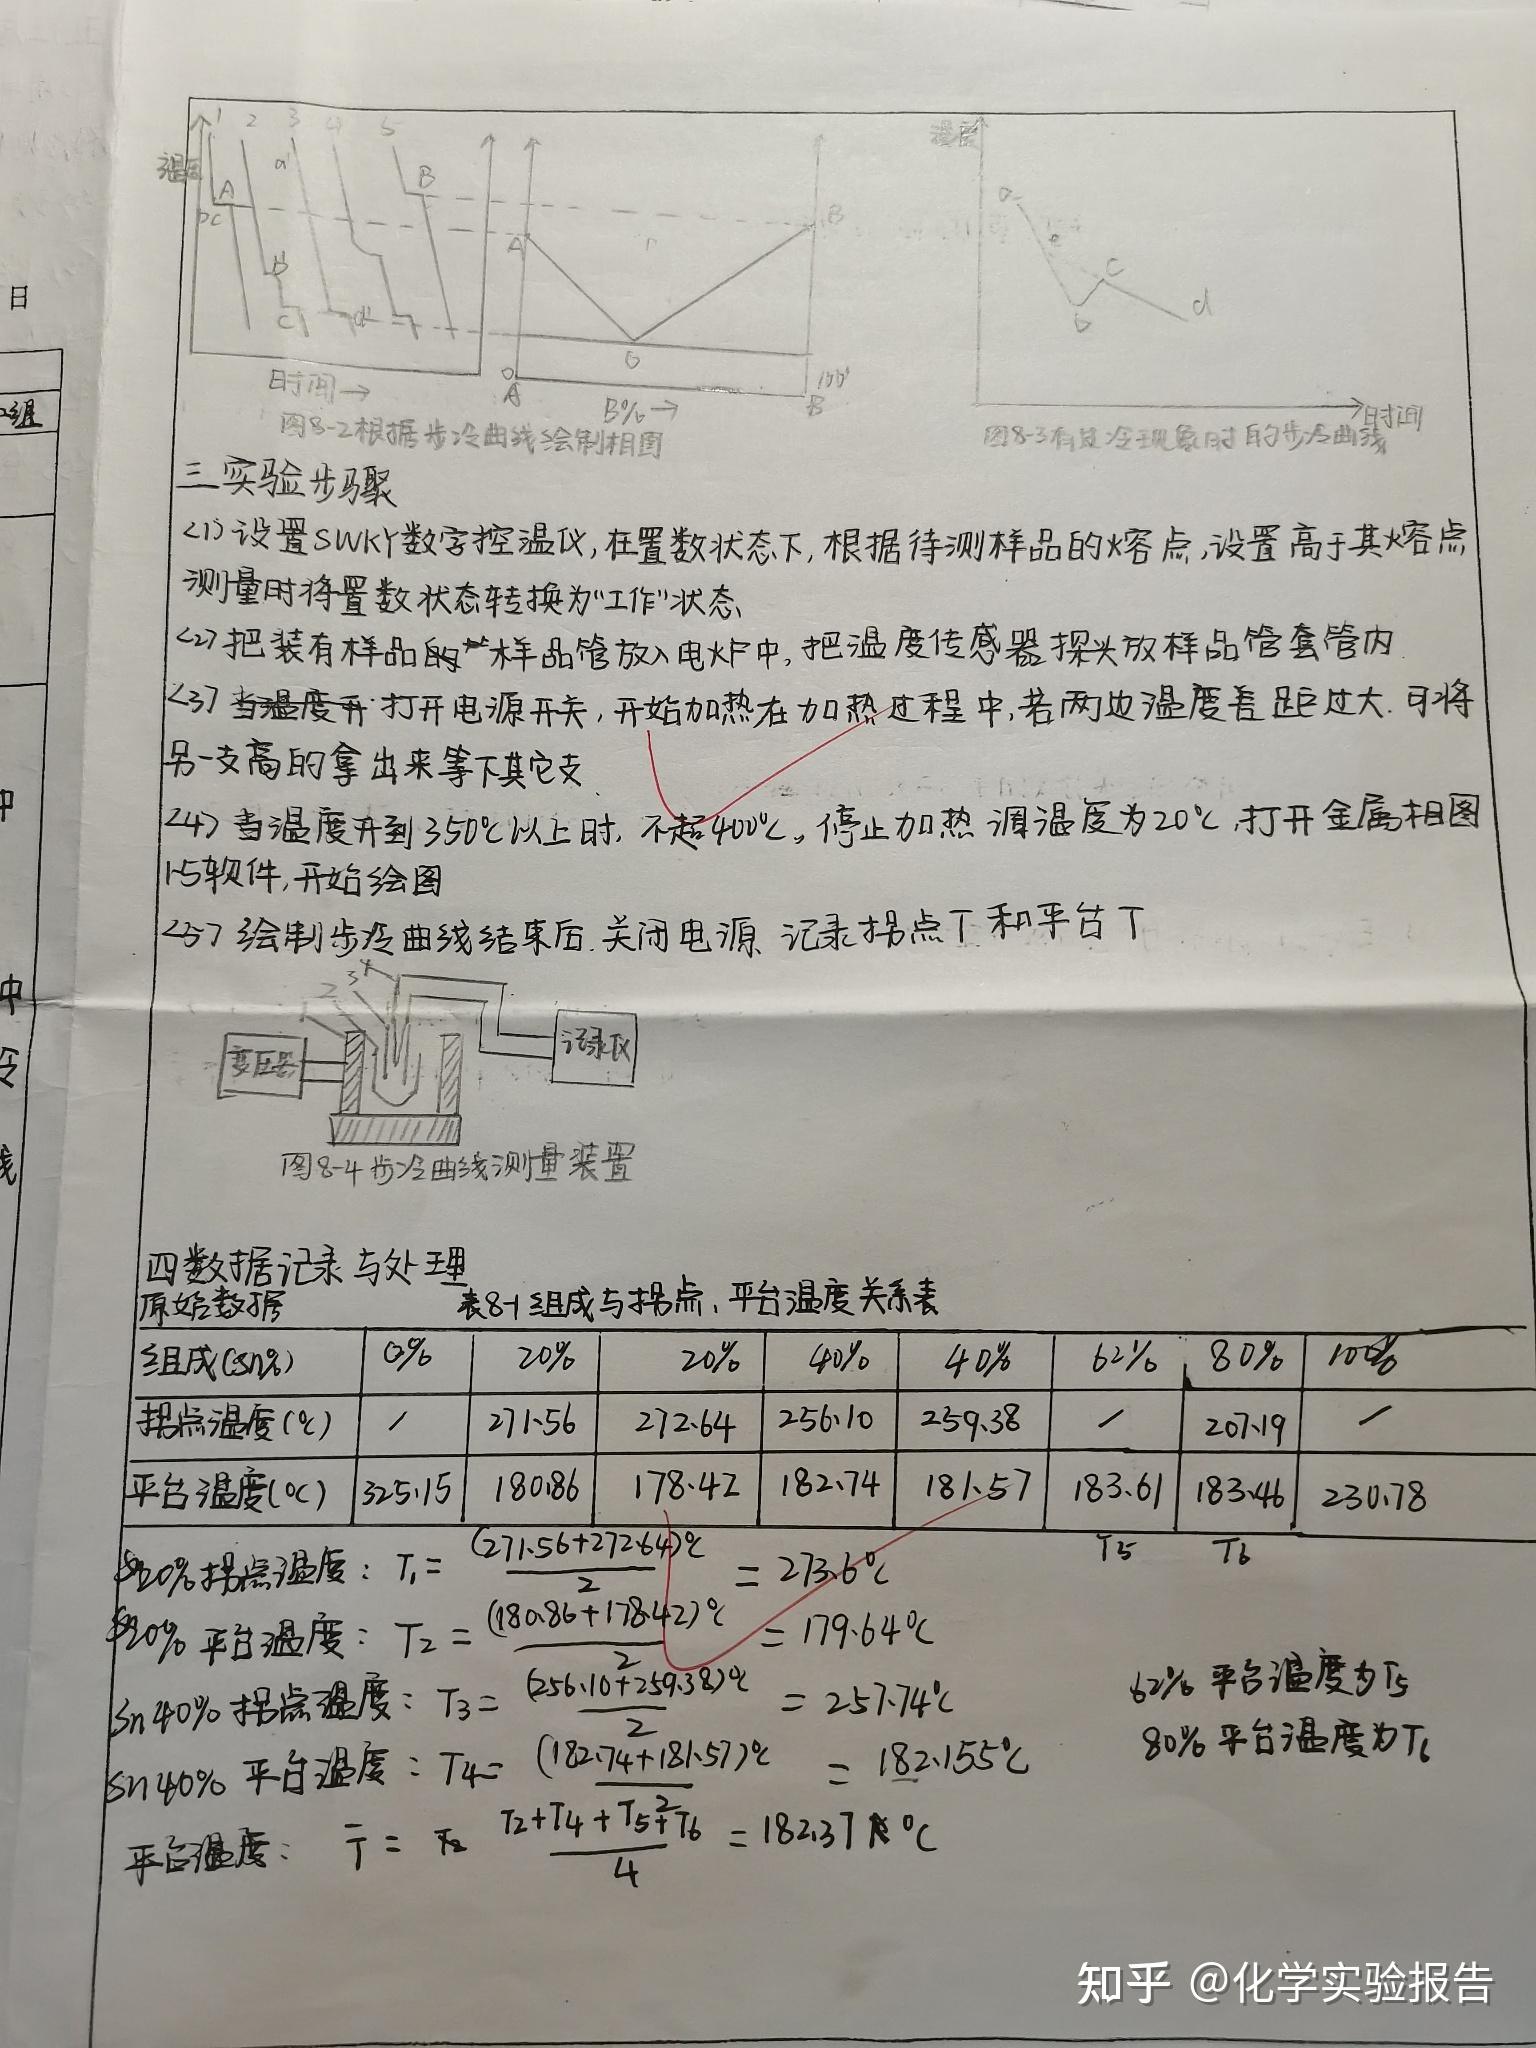 日
组
中
中
冷
线
1 2 3 4 5
温度
a'
A
B
b'
c
d'
时间→
A
B
O
A
B%→
B
图8-2根据步冷曲线绘制相图
温度
a
e
c
b
d
时间
图8-3有过冷现象时的步冷曲线
三实验步骤
<1>设置SWKY数字控温仪,在置数状态下,根据待测样品的熔点,设置高于其熔点
测量时将置数状态转换为"工作"状态、
<2>把装有样品的样品管放入电炉中,把温度传感器探头放样品管套管内
<3>当温度升打开电源开关,开始加热在加热过程中,若两边温度差距过大.可将
另一支高的拿出来等下其它支.
<4>当温度升到350℃以上时.不超400℃。停止加热 调温度为20℃,打开金属相图
15软件,开始绘图
<5>绘制步冷曲线结束后.关闭电源 记录拐点T和平台T
1 2 3 4
变压器
记录仪
图8-4步冷曲线测量装置
四数据记录与处理
原始数据 表8-1组成与拐点、平台温度关系表
组成(Sn%) 0% 20% 20% 40% 40% 62% 80% 100%
拐点温度(℃) / 271.56 272.64 256.10 259.38 / 207.19 /
平台温度(℃) 325.15 180.86 178.42 182.74 181.57 183.61 183.46 230.78
T5 T6
20%拐点温度: T1= (271.56+272.64)℃/2 = 273.6℃
20%平台温度: T2= (180.86+178.42)℃/2 = 179.64℃
Sn40%拐点温度: T3= (256.10+259.38)℃/2 = 257.74℃
62%平台温度为T5
Sn40%平台温度: T4= (182.74+181.57)℃/2 = 182.155℃
80%平台温度为T6
平台温度: T̄= T2+T4+T5+T6/4 = 182.37℃
知乎 @化学实验报告